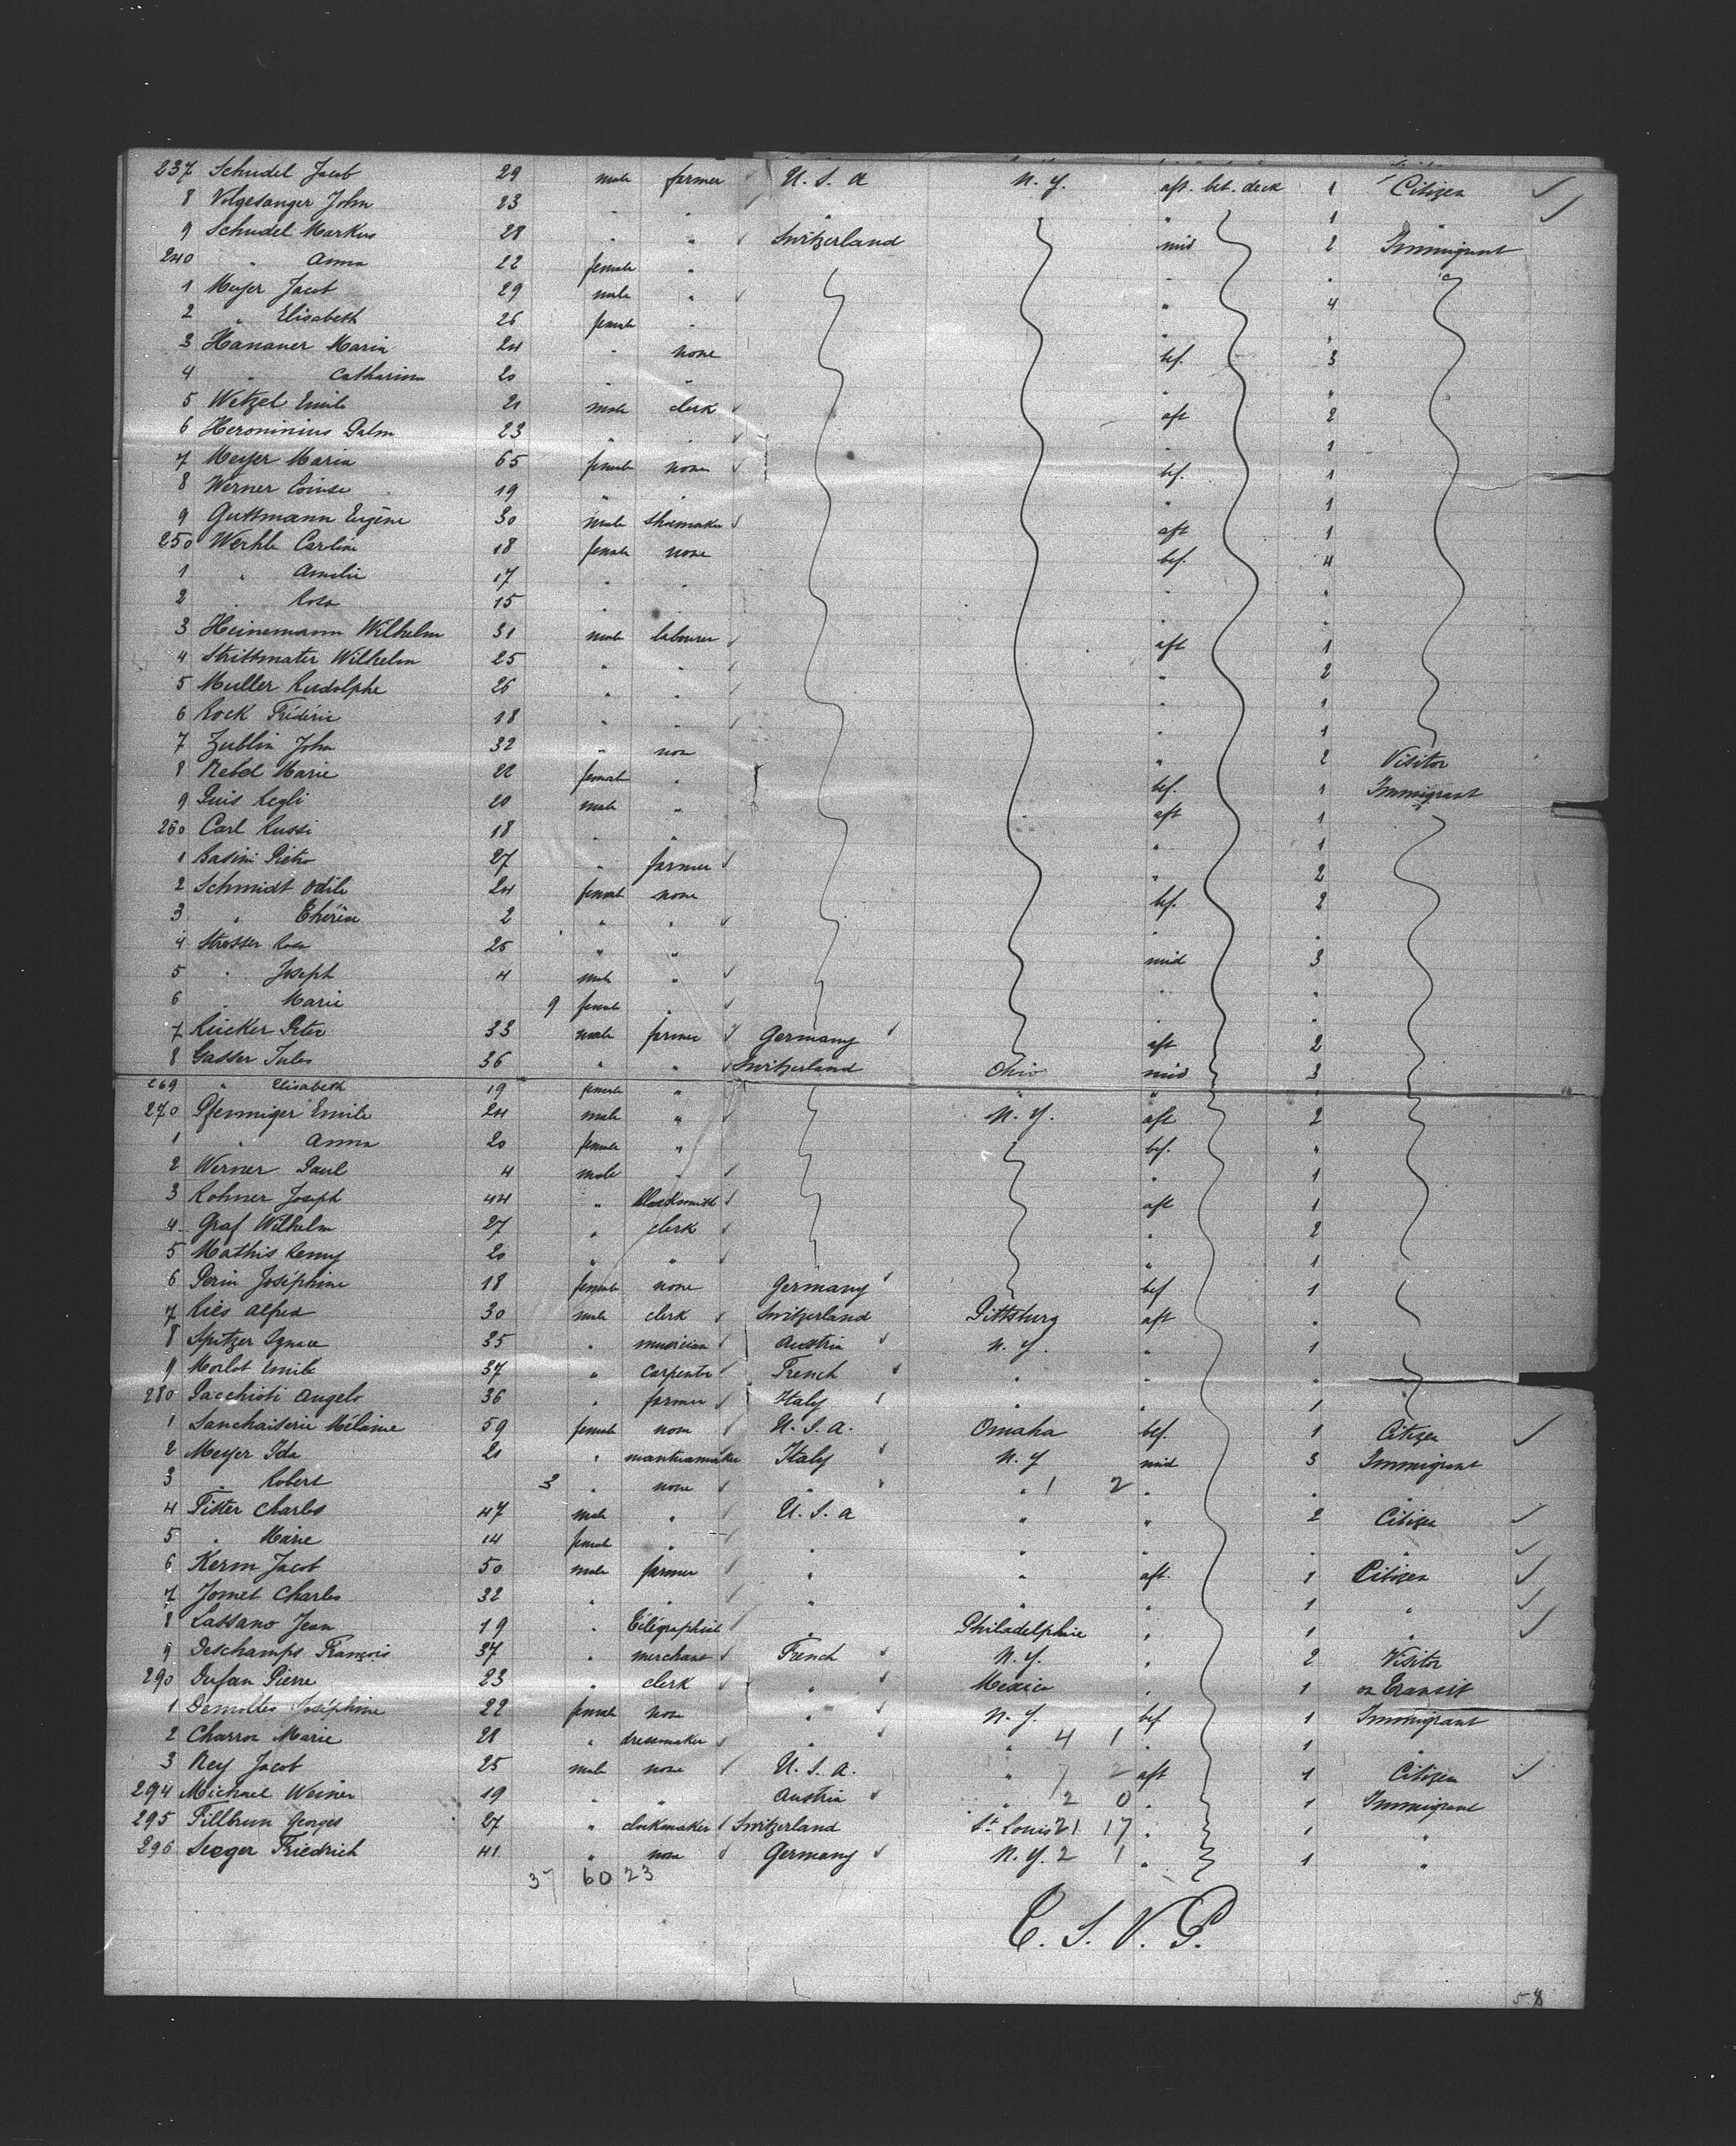 237 Schudel Jacob 29 male farmer U. S. A N. Y. aft. bet. deck 1 Citizen
8 Volgesanger John 23 " " " " 1 "
9 Schudel Markus 28 " " Switzerland mid 2 Immigrant
240 " Anna 22 female " " "
1 Meyer Jacob 29 male " " 4
2 " Elisabeth 26 female " " "
3 Hanauer Maria 24 " none bef. 3
4 " Catharina 20 " " " "
5 Wetzel Emile 21 male clerk aft 2
6 Heroninius Palm 23 " " " 1
7 Meyer Maria 65 female none bef. 1
8 Werner Louise 19 " " " 1
9 Guttmann Eugène 30 male shoemaker aft 1
250 Werhle Carline 18 female none bef. 4
1 " Amelie 17 " " " "
2 " Rosa 15 " " " "
3 Heinemann Wilhelm 31 male labourer aft 1
4 Strittmater Wilhelm 25 " " " 2
5 Muller Rudolphe 26 " " " 1
6 Rock Frédéric 18 " " " 1
7 Zublin John 32 " non " 2 Visitor
8 Rebel Marie 22 female " bef. 1 Immigrant
9 Puis Regli 20 male " aft 1
260 Carl Russi 18 " " " 1
1 Basini Pietro 27 " farmer " 2
2 Schmidt Odile 24 female none bef. 2
3 " 2 " " " "
4 Strosser Rosa 25 " " mid 3
5 " Joseph 4 male " " "
6 " Marie 9 female " " "
7 Rücker Peter 33 male farmer Germany aft 2
8 Gasser Jules 36 " " Switzerland Ohio mid 3
269 " Elisabeth 19 female " " " "
270 Pfenniger Emile 24 male " N. Y. aft 2
1 " Anna 20 female " bef. "
2 Werner Paul 4 male " " 1
3 Rohner Joseph 44 " blacksmith aft 1
4 Graf Wilhelm 27 " clerk " 2
5 Mathis Remy 20 " " " 1
6 Perin Joséphine 18 female none Germany bef 1
7 Ries Alfred 30 male clerk Switzerland Pittsburg aft "
8 Spitzer Ignace 35 " musician Austria N. Y. " 1
9 Morlot Emile 37 " carpenter French " " "
280 Pacchioti Angelo 36 " farmer Italy " " 1
1 Sanchaiserie Mélanie 59 female non U. S. A. Omaha bef. 1 Citizen
2 Meyer Ida 21 " mantuamaker Italy N. Y mid 3 Immigrant
3 " Robert 3 " none " " 1 2 " " "
4 Fister Charles 47 male " U. S. A " " 2 Citizen
5 " Marie 14 female " " " " " "
6 Kerm Jacob 50 male farmer " " aft. 1 Citizen
7 Jomet Charles 32 " " " " " 1 "
8 Lassano Jean 19 " Télégraphist " Philadelphie " 1 "
9 Deschamps François 37 " merchant French N. Y. " 2 Visitor
290 Dufan Pierre 23 " clerk " Mexico " 1 on Transit
1 Demoltes Joséphine 22 female non " N. Y. bef 1 Immigrant
2 Charron Marie 28 " dressmaker " " 4 1 " 1 "
3 Rey Jacob 25 male none U. S. A. " 7 2 aft 1 Citizen
294 Michael Weiner 19 " " Austria " 2 0 " 1 Immigrant
295 Fillbrun Georges 27 " clockmaker Switzerland St. Louis 21 17 " 1 "
296 Seeger Friedrich 41 " non Germany N. Y. 2 1 " 1 "
37 60 23
T. S. V. P.
58